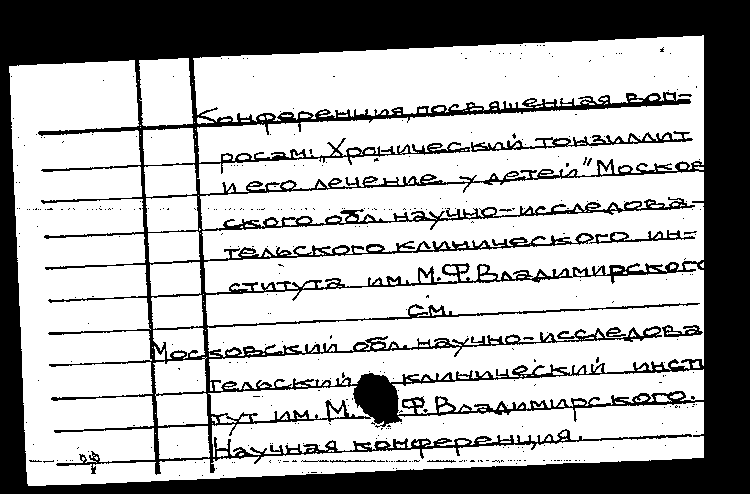 Конференция, посвященная воп=
росам: „Хронический тонзиллит
и его лечение у детей" Москов
ского обл. научно-исследова-
тельского клинического ин=
ститута им. М.Ф. Владимирского
см.
Московский обл. научно-исследова
тельский клинический инсти
тут им. М. Ф. Владимирского.
Научная конференция.